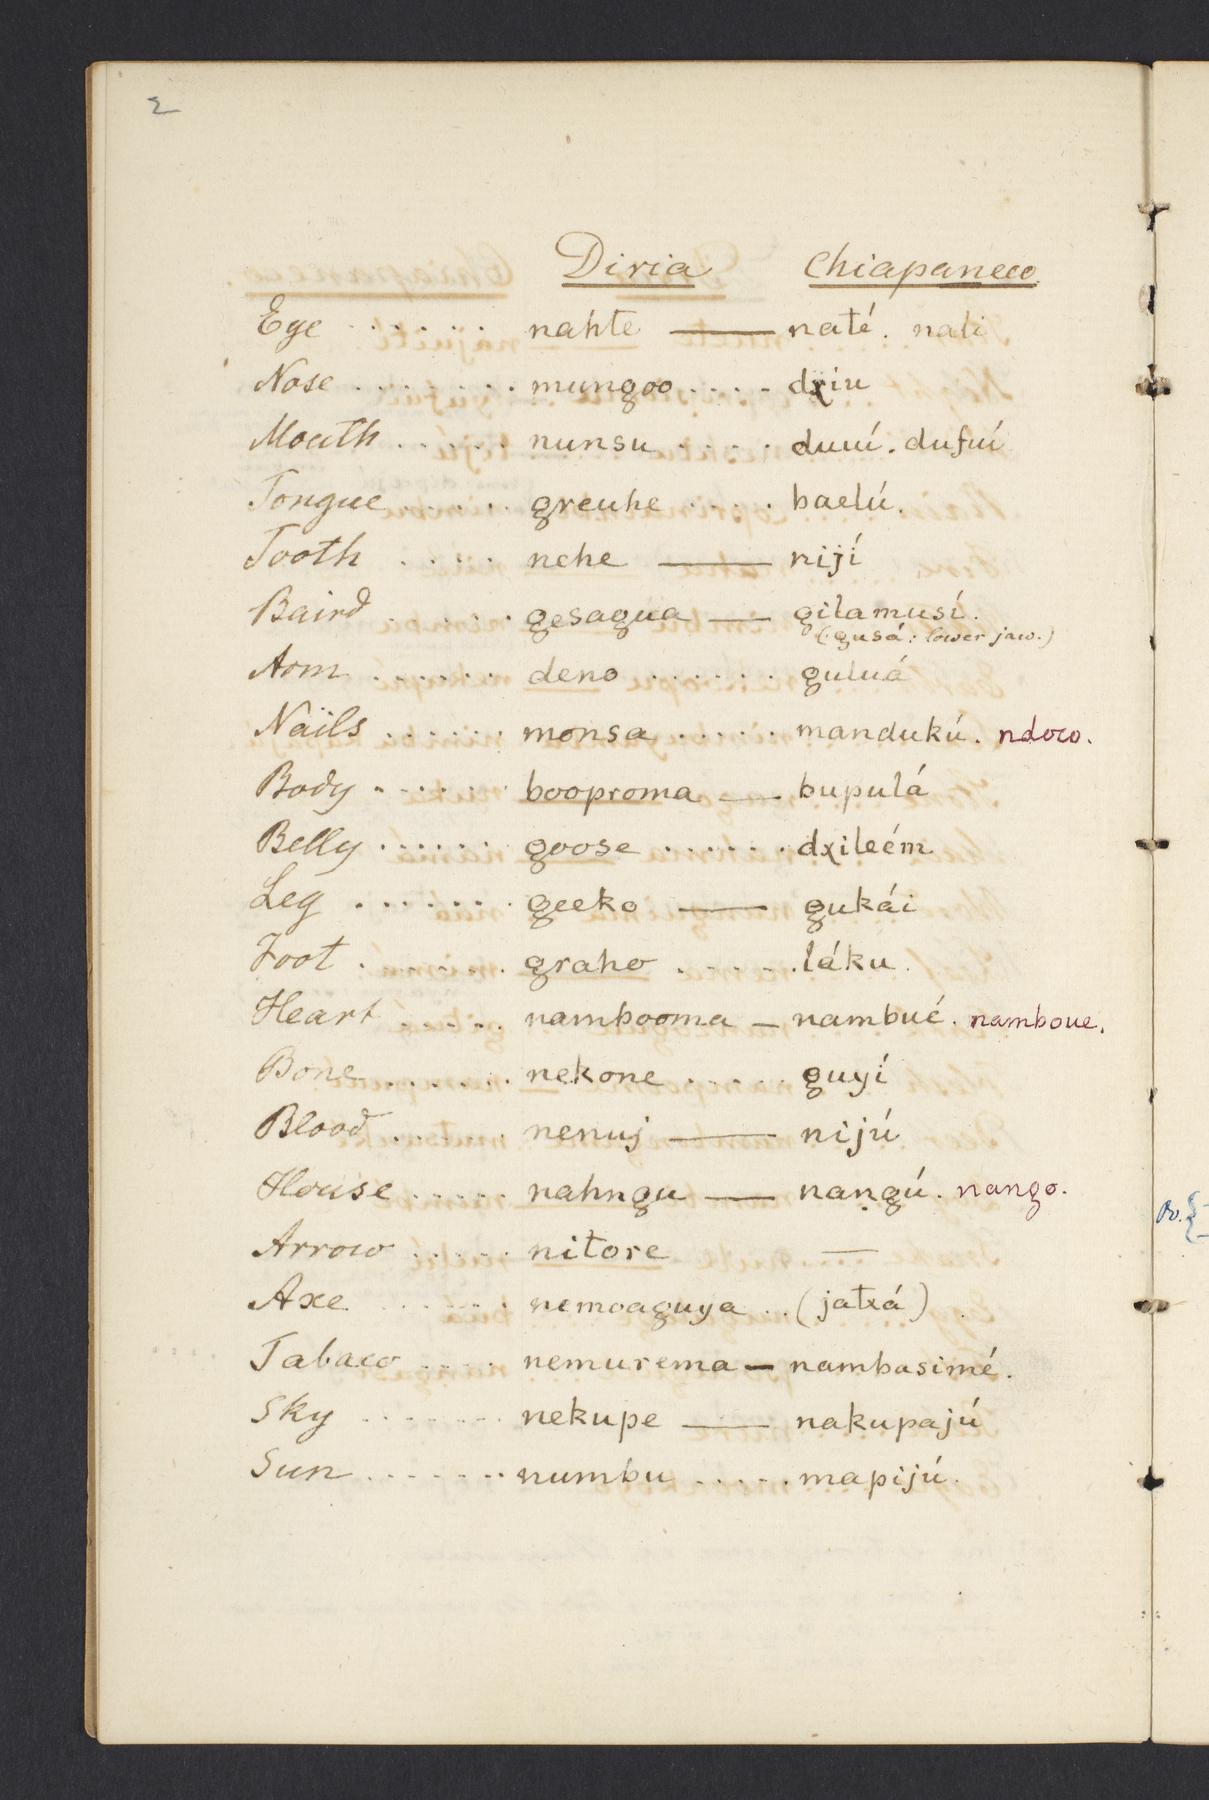 2
Diria Chiapaneco
Eye . . . . . . nahte —— naté. nati
Nose . . . . . . . mungoo . . . . dxiu
Mouth . . . . . nunsu . . . . duuí. dufuí
Tongue . . . . . greuhe . . . . baelú.
Tooth . . . . nehe —— nijí
Baird . . . . . . gesagua —— gilamusí.
(gusá: lower jaw.)
Arm . . . . . . deno . . . . . . guluá
Nails . . . . . . monsa . . . . . mandukú. ndoco.
Body . . . . . . booproma —— bupulá
Belly . . . . . . goose . . . . . . dxileém
Leg . . . . . . . geeko —— gukái
Foot . . . . . . . graho . . . . . láku.
Heart . . . . . nambooma — nambué. namboue.
Bone . . . . . . . nekone . . . . . guyí
Blood . . . . . . nenuj —— nijú
House . . . . . nahngu —— nangú. nango.
Arrow . . . . . nitore —
Axe . . . . . . nemoaguya . . (jatxá)
Tabaco . . . . nemurema — nambasimé.
Sky . . . . . . . nekupe —— nakupajú
Sun . . . . . . . numbu . . . . . mapijú.